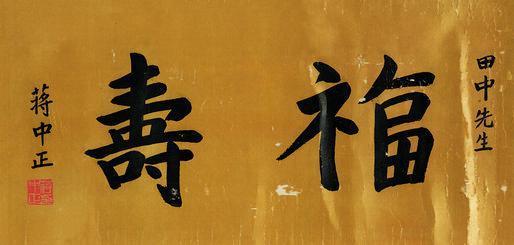 田中先生
福壽
蔣中正